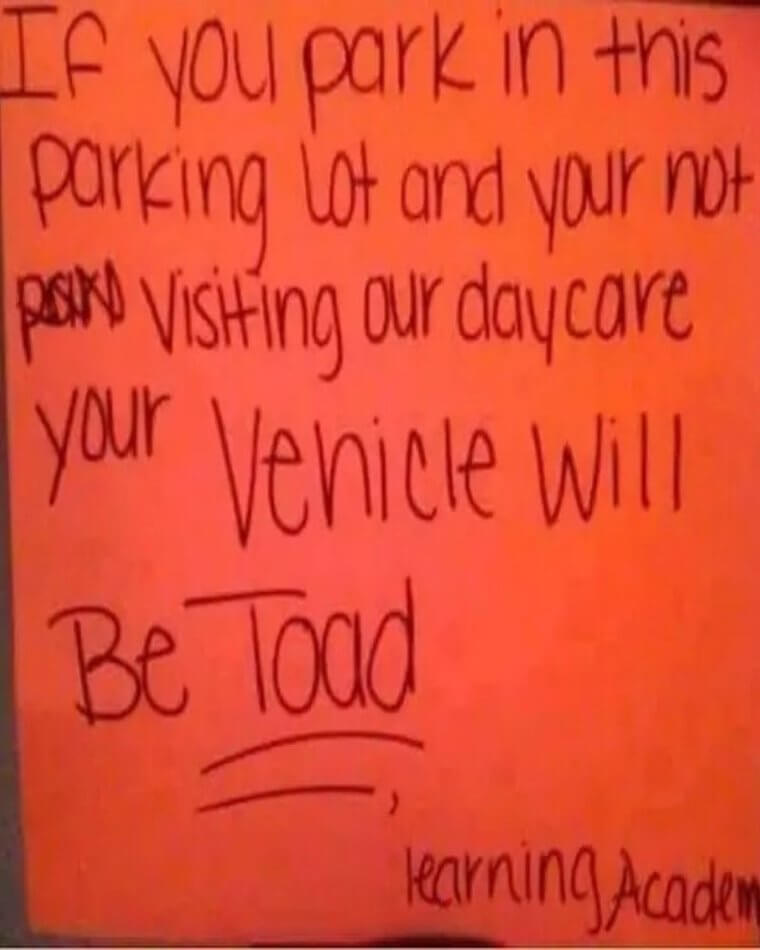 If you park in this
parking lot and your not
visiting our daycare
your Vehicle Will
Be Toad
learning Academ